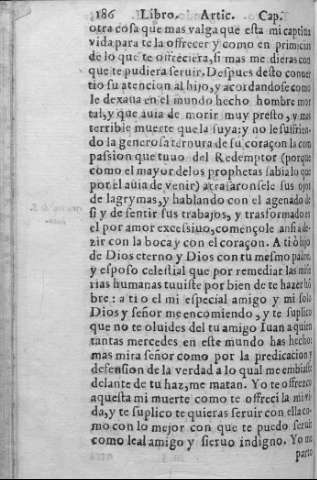 186 Libro. Artic. Cap.
otra cosa que mas valga que esta mi captiua
vida para te la offrecer y como en primicias
de lo que te offreciera, si mas me dieras con
que te pudiera seruir. Despues desto conuer
tio su atencion al hijo, y acordandose como
le dexaua en el mundo hecho hombre mor
tal, y que auia de morir muy presto, y mas
terrible muerte que la suya: y no le sufrien-
do la generosa ternura de su coraçon la com
passion que tuuo del Redemptor (porque
como el mayor de los prophetas sabia lo que
por el auia de venir) arrasaronsele sus ojos
de lagrymas, y hablando con el agenado de
si y de sentir sus trabajos, y trasformado en
el por amor excessiuo, començole ansi a de-
zir con la boca y con el coraçon. A ti ò hijo
de Dios eterno y Dios con tu mesmo padre,
y esposo celestial que por remediar las mise
rias humanas tuuiste por bien de te hazer hō
bre: a ti o el mi especial amigo y mi solo
Dios y señor me encomiendo, y te suplico
que no te oluides del tu amigo Iuan a quien
tantas mercedes en este mundo has hecho:
mas mira señor como por la predicacion y
defension de la verdad a lo qual me embiaste
delante de tu haz, me matan. Yo te offrezco
aquesta mi muerte como te offreci la mi vi
da, y te suplico te quieras seruir con ella co-
mo con lo mejor con que te puedo seruir
como leal amigo y sieruo indigno. Yo me
parto